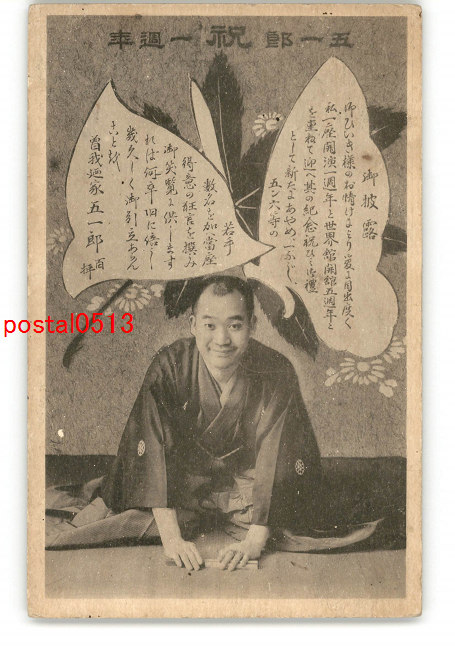 五一郎 祝 一週年
御披露
御ひいき様のお情けにより愛で目出度く
私一座開演一週年と世界館開館五週年と
を重ねて迎へ其の紀念祝ひと御禮
として新たにあやめ一ふじ
五ン六寺の
若手
数名を加へ當座
得意の狂言を撰み
御笑覧に供します
れば何卒旧に倍し
幾久しく御引立あらん
ことを
曽我廼家五一郎
百拝
postal0513